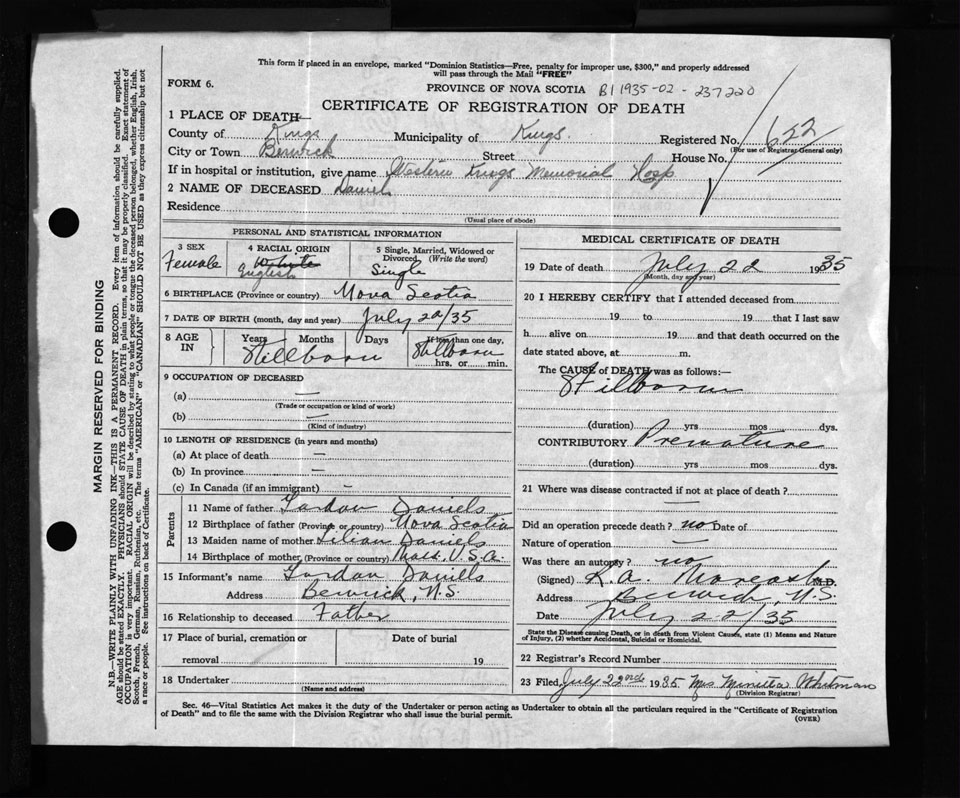 This form if placed in an envelope, marked "Dominion Statistics—Free, penalty for improper use, $300," and properly addressed
will pass through the Mail "FREE"
FORM 6.
PROVINCE OF NOVA SCOTIA B1 1935-02-237220
CERTIFICATE OF REGISTRATION OF DEATH
1 PLACE OF DEATH—
County of Kings Municipality of Kings Registered No. 622
(For use of Registrar General only)
City or Town Berwick Street House No.
If in hospital or institution, give name Western Kings Memorial Hosp
2 NAME OF DECEASED Daniels
Residence
(Usual place of abode)
PERSONAL AND STATISTICAL INFORMATION
3 SEX
Female
4 RACIAL ORIGIN
White
English
5 Single, Married, Widowed or
Divorced (Write the word)
Single
6 BIRTHPLACE (Province or country) Nova Scotia
7 DATE OF BIRTH (month, day and year) July 22/35
8 AGE IN
Years Months Days If less than one day,
Stillborn Stillborn
hrs. or min.
9 OCCUPATION OF DECEASED
(a) —
(Trade or occupation or kind of work)
(b) —
(Kind of industry)
10 LENGTH OF RESIDENCE (in years and months)
(a) At place of death —
(b) In province —
(c) In Canada (if an immigrant) —
Parents
11 Name of father Gordon Daniels
12 Birthplace of father (Province or country) Nova Scotia
13 Maiden name of mother Lilian Daniels
14 Birthplace of mother (Province or country) Mass. U.S.A.
15 Informant's name Gordon Daniels
Address Berwick, N.S.
16 Relationship to deceased Father
17 Place of burial, cremation or Date of burial
removal 19
18 Undertaker
(Name and address)
MEDICAL CERTIFICATE OF DEATH
19 Date of death July 22 1935
(Month, day and year)
20 I HEREBY CERTIFY that I attended deceased from
19 to 19 that I last saw
h alive on 19 and that death occurred on the
date stated above, at m.
The CAUSE of DEATH was as follows:—
Stillborn
(duration) yrs mos dys.
CONTRIBUTORY Premature
(duration) yrs mos dys.
21 Where was disease contracted if not at place of death?
—
Did an operation precede death? no Date of
Nature of operation —
Was there an autopsy? no
(Signed) R.A. M.D.
Address Berwick, N.S.
Date July 22/35
State the Disease causing Death, or in death from Violent Causes, state (1) Means and Nature
of Injury, (2) whether Accidental, Suicidal or Homicidal.
22 Registrar's Record Number
23 Filed July 22nd 1935 Mrs Minetta Whitman
(Division Registrar)
Sec. 46—Vital Statistics Act makes it the duty of the Undertaker or person acting as Undertaker to obtain all the particulars required in the "Certificate of Registration
of Death" and to file the same with the Division Registrar who shall issue the burial permit.
(OVER)
MARGIN RESERVED FOR BINDING
N.B.—WRITE PLAINLY WITH UNFADING INK—THIS IS A PERMANENT RECORD. Every item of information should be carefully supplied.
AGE should be stated EXACTLY. PHYSICIANS should STATE CAUSE OF DEATH in plain terms, so that it may be properly classified. Exact statement of
OCCUPATION is very important. RACIAL ORIGIN will be described by stating to what people or tongue the deceased person belonged, whether English, Irish,
Scotch, French, German, Russian, Ruthenian, etc. The terms "AMERICAN" or "CANADIAN" SHOULD NOT BE USED as they express citizenship but not
a race or people. See instructions on back of Certificate.